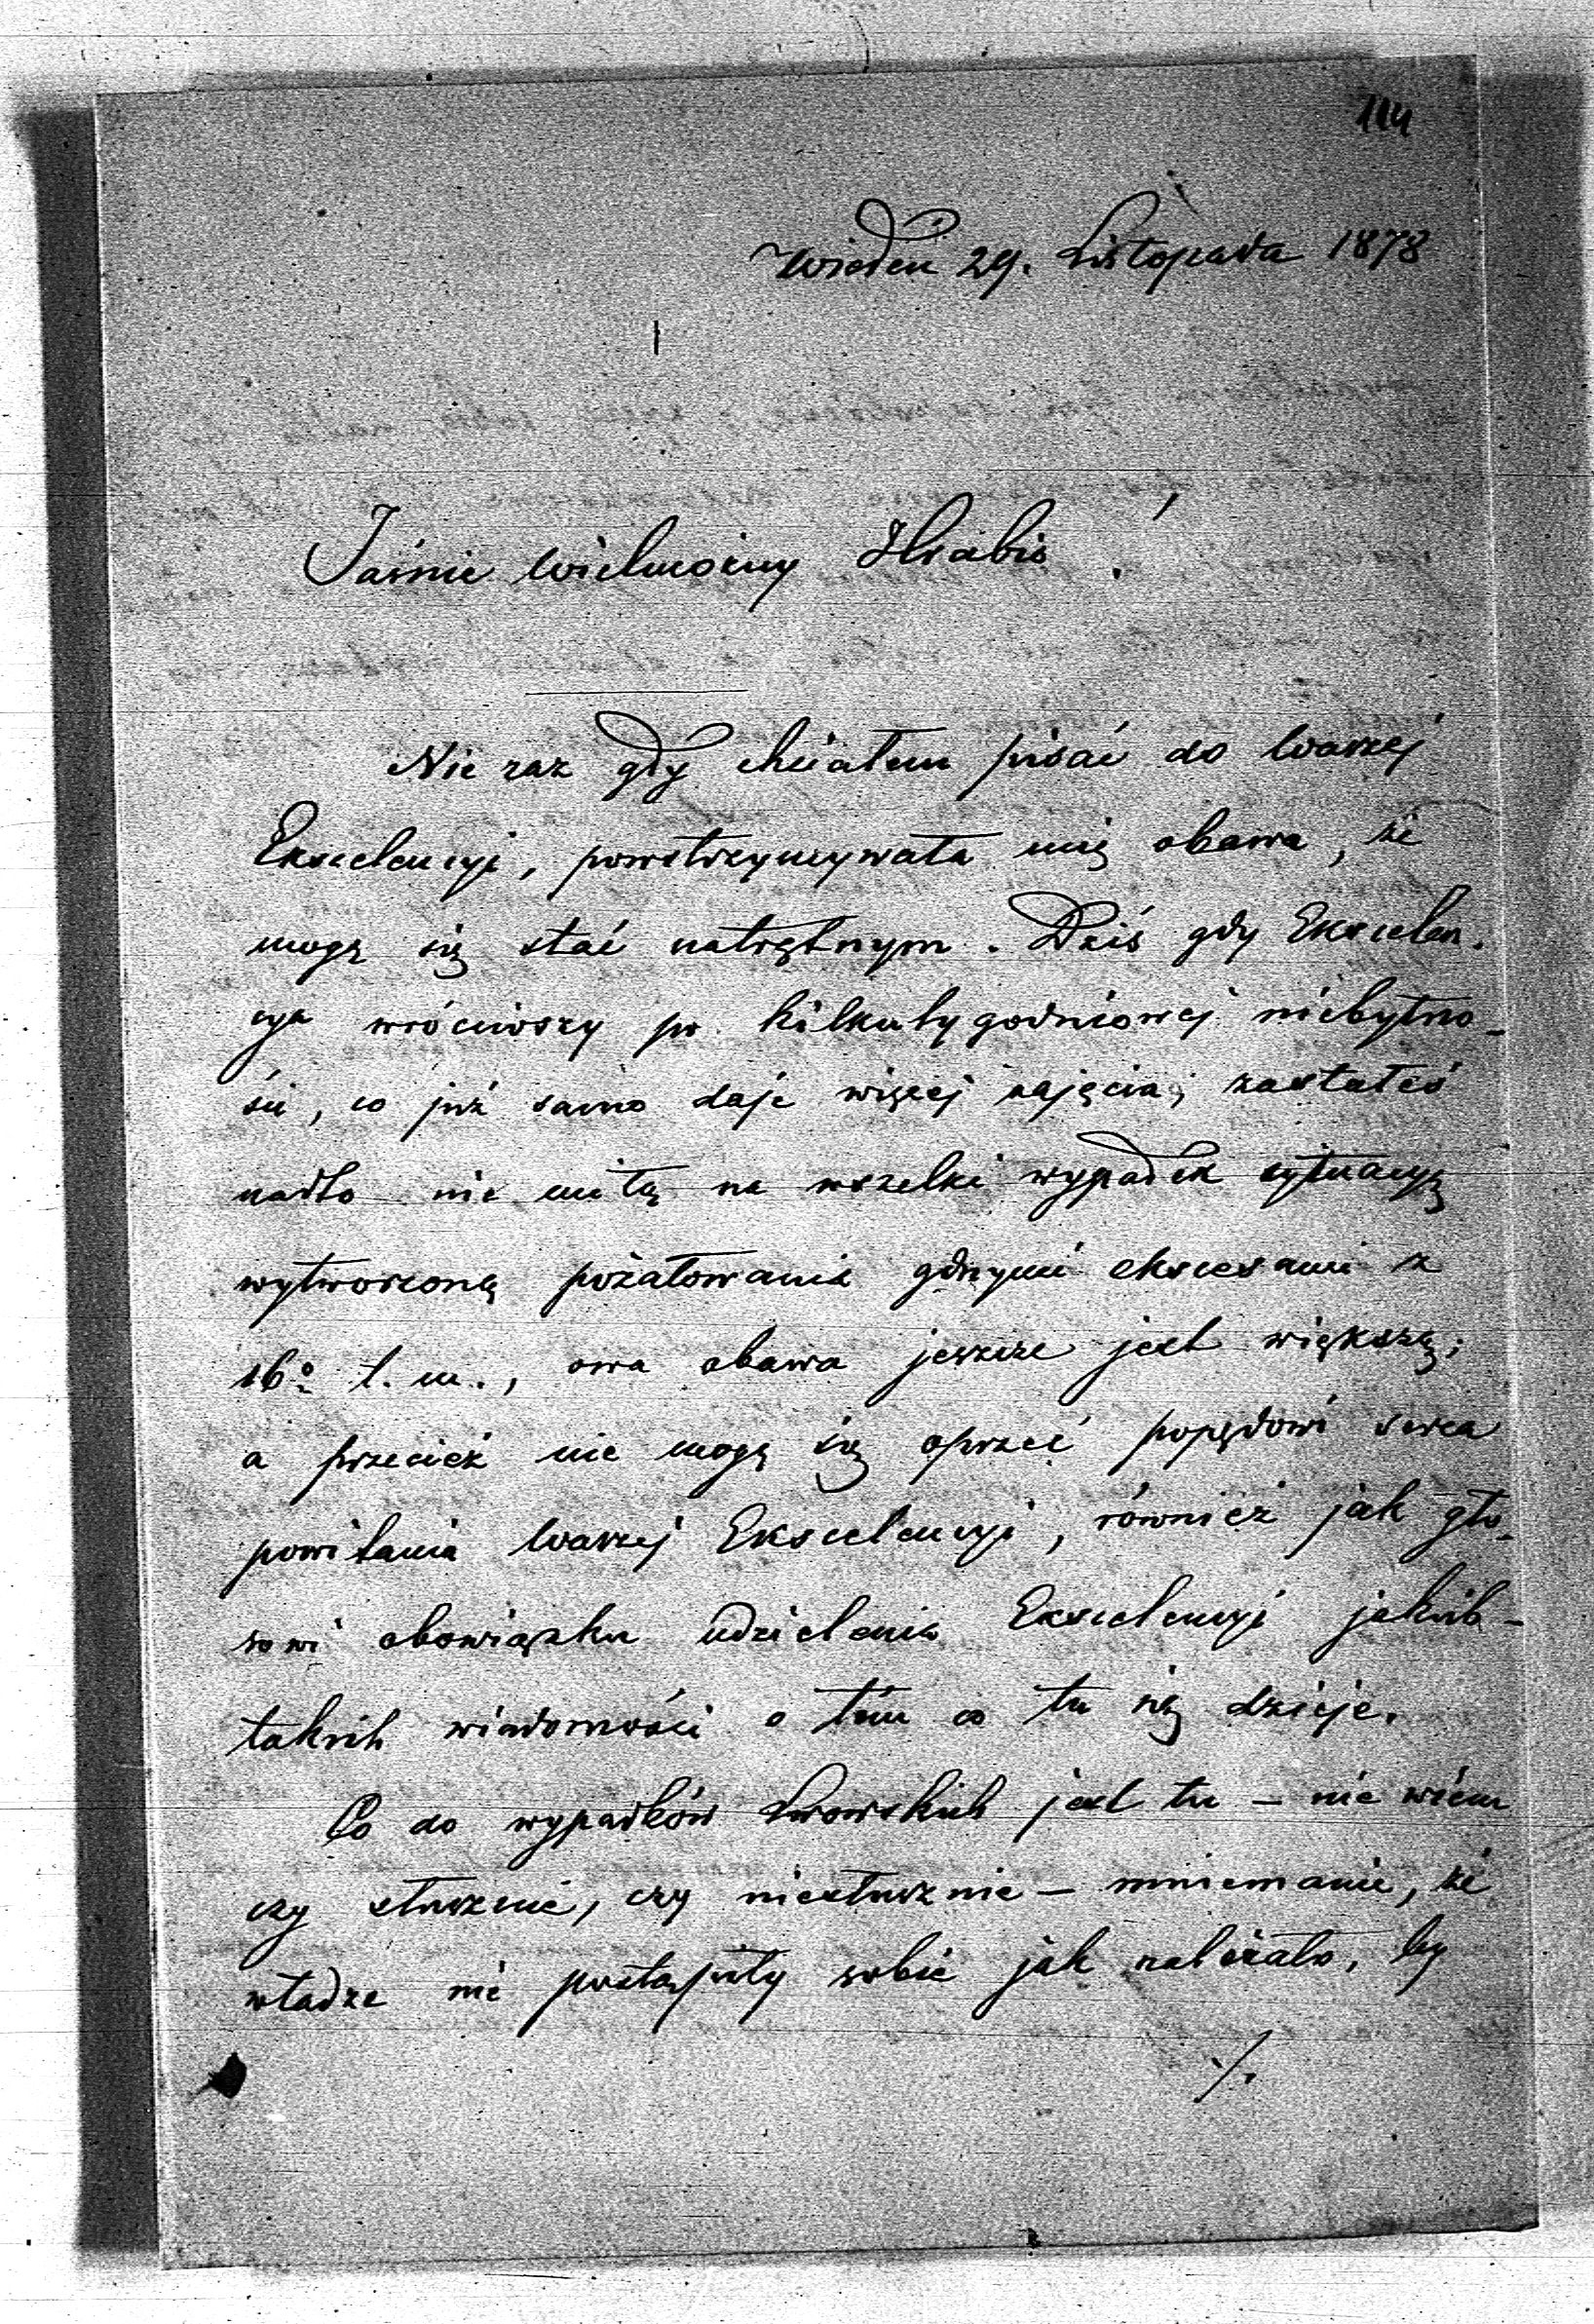 114
Wiedeń 29. Listopada 1878
Jaśnie Wielmożny Hrabio!
Nie raz gdy chciałem pisać do Waszej
Ekscelencyi, powstrzymywała mię obawa, że
mogę się stać natrętnym. Dziś gdy Ekscelen-
cya wróciwszy po kilkutygodniowej niebytno-
ści, co już samo daje więcej zajęcia, zastałeś
nadto nie miłą na wszelki wypadek sytuacyę
wytworzoną pożałowania godnymi ekscesami z
16º t. m., owa obawa jeszcze jest większą;
a przecież nie mogę się oprzeć popędowi serca
powitania Waszej Ekscelencyi, również jak gło-
sowi obowiązku udzielenia Ekscelencyi jakich-
takich wiadomości o tém co tu się dzieje.
Co do wypadków Lwowskich jest tu – nie wiem
czy słusznie, czy niesłusznie – mniemanie, że
władze nie postąpiły sobie jak należało, by
./.